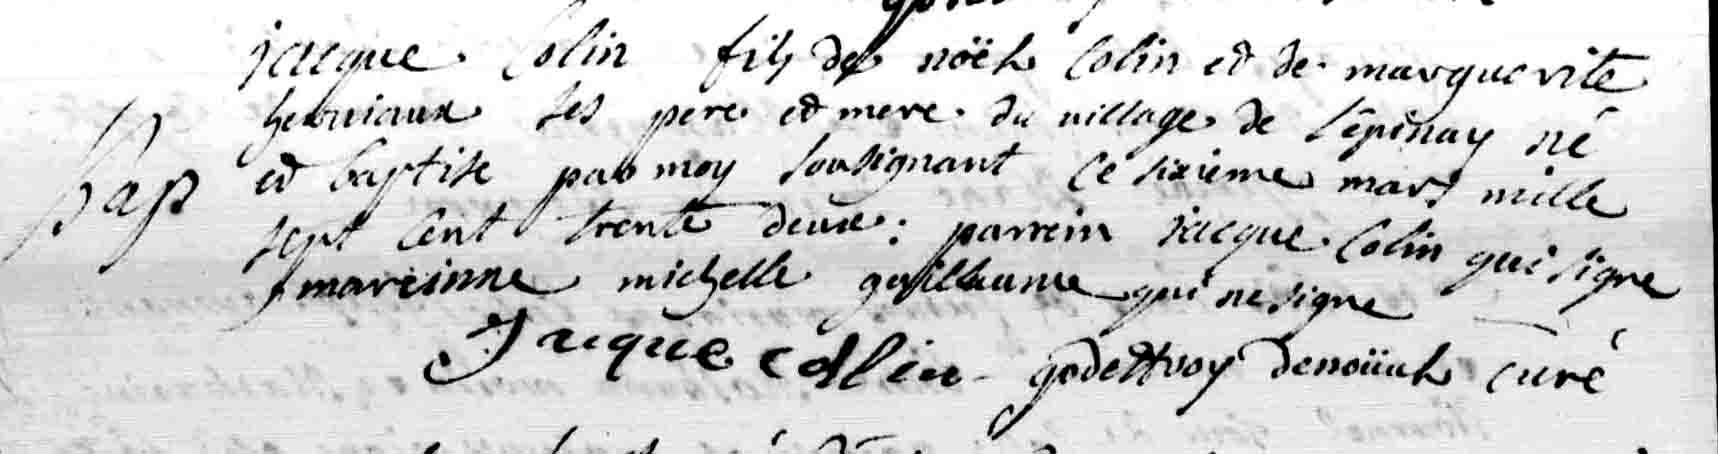 jacque Colin fils de noël Colin et de marguerite
herviaux ses pere et mere du village de l'épinay né
Bap et baptise par moy sousignant ce sixieme mars mille
sept cent trente deux : parrein jacque Colin qui signe
mareinne michelle guillaume qui ne signe
Jacque Collin godeffroy curé